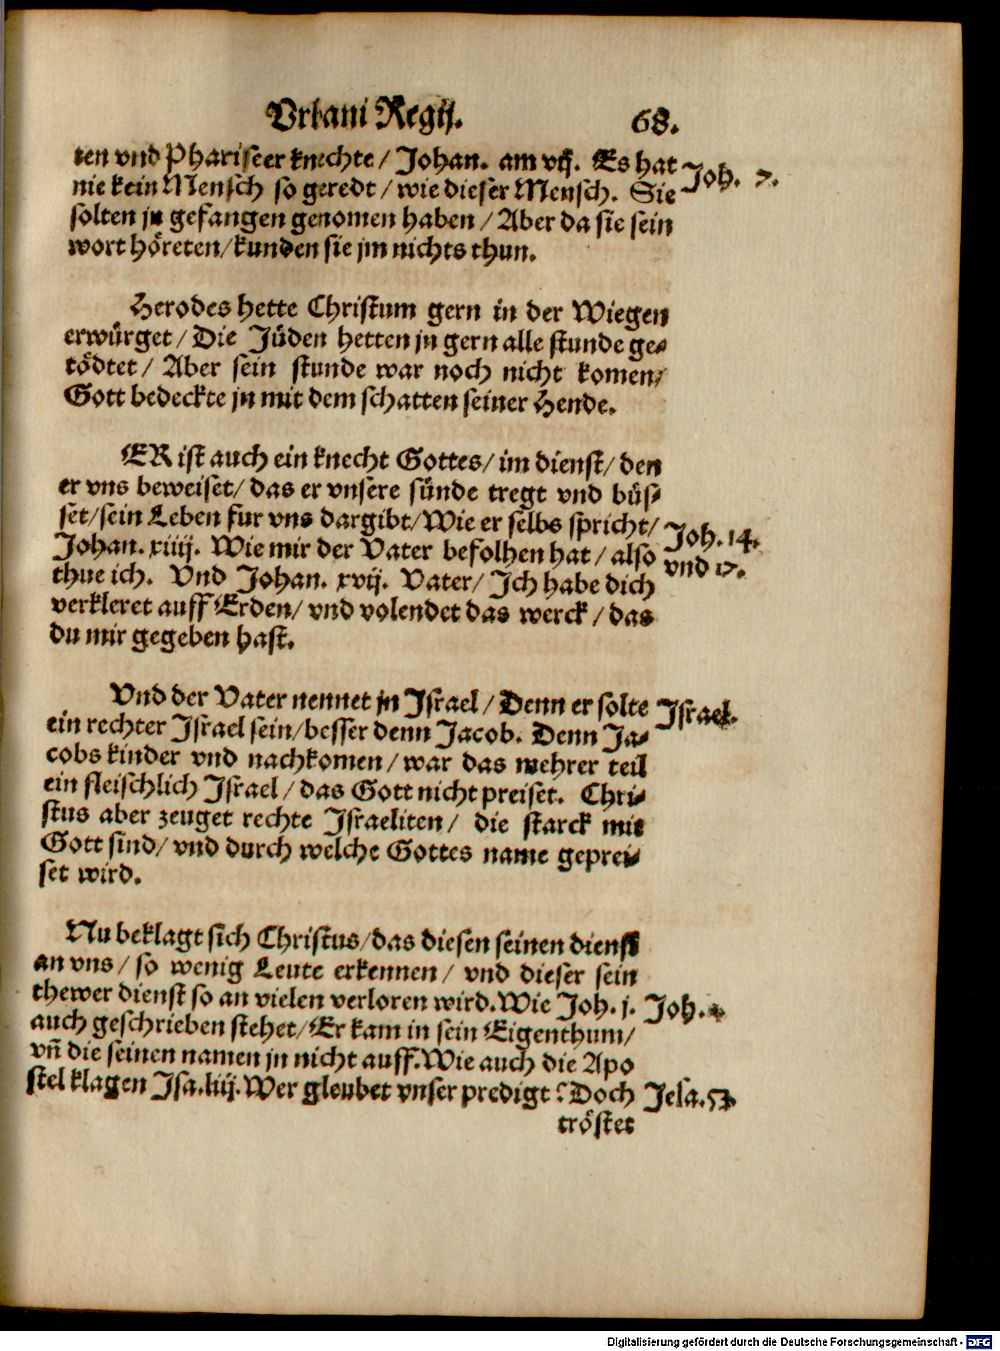 Vrbani Regij. 68.
ten vnd Phariseer knechte/ Johan. am vij. Es hat
nie kein Mensch so geredt/ wie dieser Mensch. Sie
Joh. 7.
solten jn gefangen genomen haben/ Aber da sie sein
wort höreten/ kunden sie jm nichts thun.
Herodes hette Christum gern in der Wiegen
erwürget/ Die Jüden hetten jn gern alle stunde ge-
tödtet/ Aber sein stunde war noch nicht komen/
Gott bedeckte jn mit dem schatten seiner Hende.
ER ist auch ein knecht Gottes/ im dienst/ den
er vns beweiset/ das er vnsere sünde tregt vnd büs-
set/ sein Leben fur vns dargibt/ Wie er selbs spricht/
Johan. xiiij. Wie mir der Vater befolhen hat/ also
Joh. 14.
vnd 17.
thue ich. Vnd Johan. xvij. Vater/ Ich habe dich
verkleret auff Erden/ vnd volendet das werck/ das
du mir gegeben hast.
Vnd der Vater nennet jn Israel/ Denn er solte
Israel.
ein rechter Israel sein/ besser denn Jacob. Denn Ja-
cobs kinder vnd nachkomen/ war das mehrer teil
ein fleischlich Israel/ das Gott nicht preiset. Chri-
stus aber zeuget rechte Israeliten/ die starck mit
Gott sind/ vnd durch welche Gottes name geprei-
set wird.
Nu beklagt sich Christus/ das diesen seinen dienst
an vns/ so wenig Leute erkennen/ vnd dieser sein
thewer dienst so an vielen verloren wird. Wie Joh. j.
Joh.
auch geschrieben stehet/ Er kam in sein Eigenthum/
vñ die seinen namen jn nicht auff. Wie auch die Apo
stel klagen Isa. liij. Wer gleubet vnser predigt? Doch
Jesa. 53.
tröstet
Digitalisierung gefördert durch die Deutsche Forschungsgemeinschaft - DFG